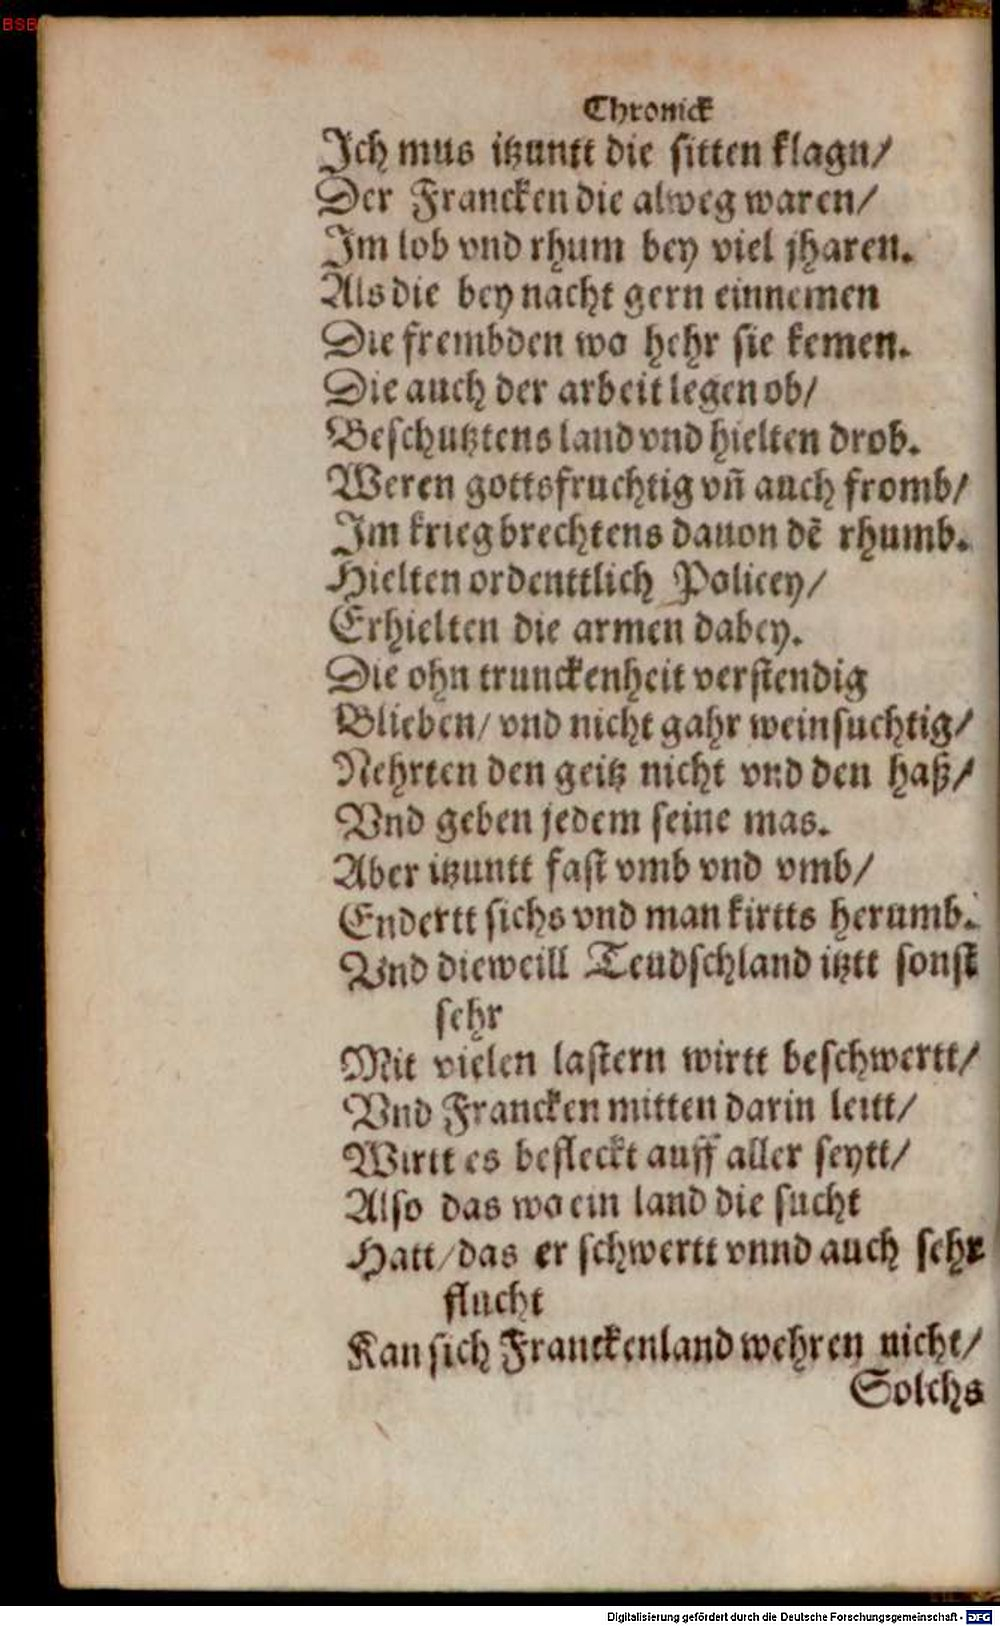 BSB
Chronick
Ich mus itzuntt die sitten klagn/
Der Francken die alweg waren/
Im lob vnd rhum bey viel jharen.
Als die bey nacht gern einnemen
Die frembden wo hehr sie kemen.
Die auch der arbeit legen ob/
Beschutztens land vnd hielten drob.
Weren gottsfruchtig vñ auch fromb/
Im krieg brechtens dauon dẽ rhumb.
Hielten ordenttlich Policey/
Erhielten die armen dabey.
Die ohn trunckenheit verstendig
Blieben/ vnd nicht gahr weinsuchtig/
Nehrten den geitz nicht vnd den haß/
Vnd geben jedem seine mas.
Aber itzuntt fast vmb vnd vmb/
Endertt sichs vnd man kirtts herumb.
Vnd dieweill Teudschland itztt sonst
sehr
Mit vielen lastern wirtt beschwertt/
Vnd Francken mitten darin leitt/
Wirtt es befleckt auff aller seytt/
Also das wo ein land die sucht
Hatt/das er schwertt vnnd auch sehr
flucht
Kan sich Franckenland wehren nicht/
Solchs
Digitalisierung gefördert durch die Deutsche Forschungsgemeinschaft - DFG